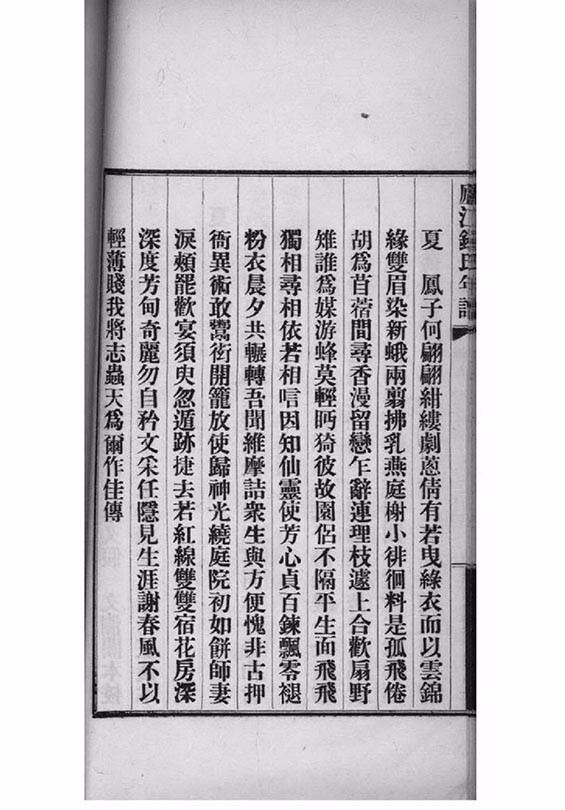 廬江錢氏年譜
夏　鳳子何翩翩紺縷劇蔥倩有若曳綠衣而以雲錦
緣雙眉染新蛾兩翦拂乳燕庭榭小徘徊料是孤飛倦
胡爲苜蓿間尋香漫留戀乍辭連理枝遽上合歡扇野
雉誰爲媒游蜂莫輕眄猗彼故園侶不隔平生面飛飛
獨相尋相依若相唁因知仙靈使芳心貞百鍊飄零褪
粉衣晨夕共輾轉吾聞維摩詰衆生與方便愧非古押
衙異術敢鬻衒開籠放使歸神光繞庭院初如餅師妻
淚頰罷歡宴須臾忽遁跡捷去若紅線雙雙宿花房深
深度芳甸奇麗勿自矜文采任隱見生涯謝春風不以
輕薄賤我將志蟲天爲爾作佳傳